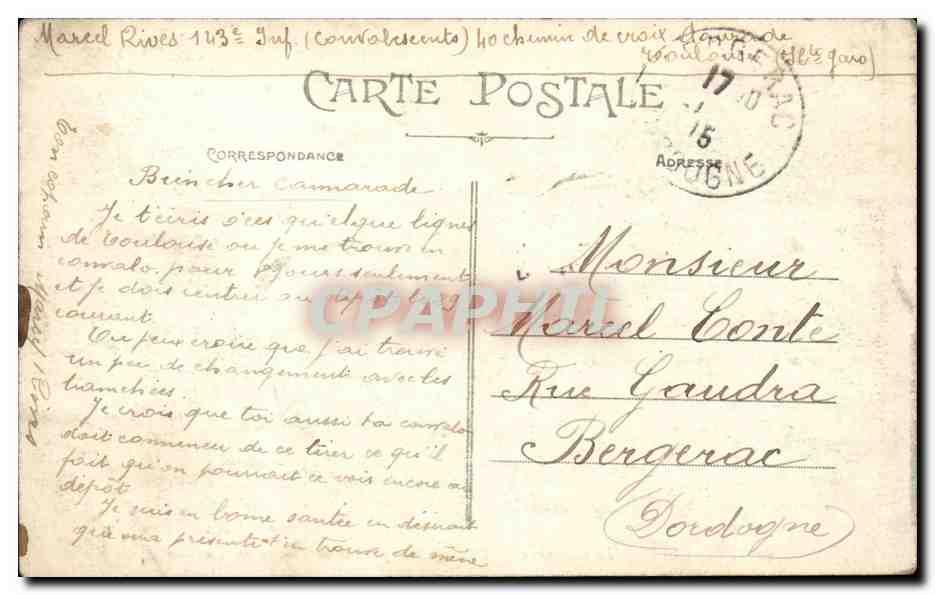 Marcel Rives 143e Inf. (Convalescents) 40 chemin de croix
Toulouse (Hte garo)
CARTE POSTALE
BERGERAC
17
15
DOGNE
CORRESPONDANCE
ADRESSE
Bien cher Camarade
Je t'écris ces quelque lignes
de Toulouse ou je me trouve en
convalo. pour jours seulement
et je dois rentrer au depot le 29
courant.
Tu peux croire que j'ai trouvé
un peu de changement avec les
tranchées.
Je crois que toi aussi ta convalo
doit commencer de ce tirer ce qu'il
fait qu'on pourrait ce vois encore au
depôt
Je suis en bonne santée en désirant
que ma présente t'en trouve de même
Ton copain Marcel Rives
Monsieur
Marcel Conte
Rue Gaudra
Bergerac
(Dordogne)
CPAPHIL